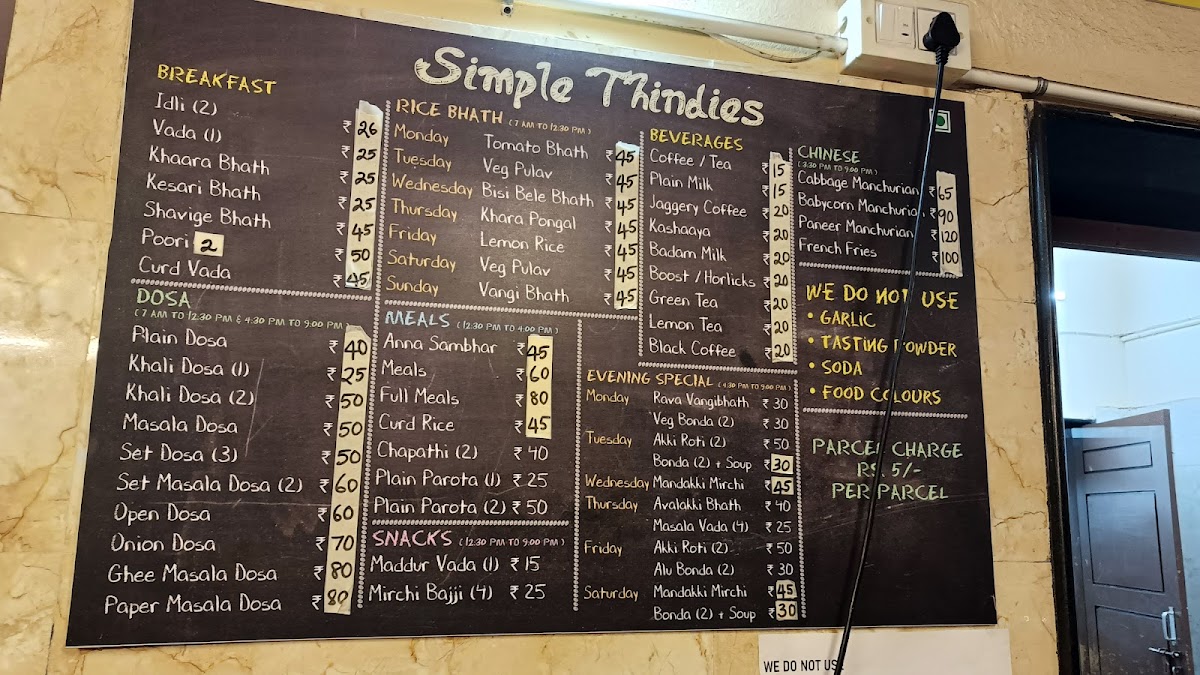 Simple Thindies
BREAKFAST
Idli (2) ₹ 26
Vada (1) ₹ 25
Khaara Bhath ₹ 25
Kesari Bhath ₹ 25
Shavige Bhath ₹ 45
Poori 2 ₹ 50
Curd Vada ₹ 45
DOSA
(7 AM TO 12:30 PM & 4:30 PM TO 9:00 PM)
Plain Dosa ₹ 40
Khali Dosa (1) ₹ 25
Khali Dosa (2) ₹ 50
Masala Dosa ₹ 50
Set Dosa (3) ₹ 50
Set Masala Dosa (2) ₹ 60
Open Dosa ₹ 60
Onion Dosa ₹ 70
Ghee Masala Dosa ₹ 80
Paper Masala Dosa ₹ 80
RICE BHATH (7 AM TO 12:30 PM)
Monday Tomato Bhath ₹ 45
Tuesday Veg Pulav ₹ 45
Wednesday Bisi Bele Bhath ₹ 45
Thursday Khara Pongal ₹ 45
Friday Lemon Rice ₹ 45
Saturday Veg Pulav ₹ 45
Sunday Vangi Bhath ₹ 45
MEALS (12:30 PM TO 4:00 PM)
Anna Sambhar ₹ 45
Meals ₹ 60
Full Meals ₹ 80
Curd Rice ₹ 45
Chapathi (2) ₹ 40
Plain Parota (1) ₹ 25
Plain Parota (2) ₹ 50
SNACKS (12:30 PM TO 9:00 PM)
Maddur Vada (1) ₹ 15
Mirchi Bajji (4) ₹ 25
BEVERAGES
Coffee / Tea ₹ 15
Plain Milk ₹ 15
Jaggery Coffee ₹ 20
Kashaaya ₹ 20
Badam Milk ₹ 20
Boost / Horlicks ₹ 20
Green Tea ₹ 20
Lemon Tea ₹ 20
Black Coffee ₹ 20
EVENING SPECIAL (4:30 PM TO 9:00 PM)
Monday Rava Vangibhath ₹ 30
Veg Bonda (2) ₹ 30
Tuesday Akki Roti (2) ₹ 50
Bonda (2) + Soup ₹ 30
Wednesday Mandakki Mirchi ₹ 45
Thursday Avalakki Bhath ₹ 40
Masala Vada (4) ₹ 25
Friday Akki Roti (2) ₹ 50
Alu Bonda (2) ₹ 30
Saturday Mandakki Mirchi ₹ 45
Bonda (2) + Soup ₹ 30
CHINESE
(3:30 PM TO 9:00 PM)
Cabbage Manchurian ₹ 65
Babycorn Manchurian ₹ 90
Paneer Manchurian ₹ 120
French Fries ₹ 100
WE DO NOT USE
• GARLIC
• TASTING POWDER
• SODA
• FOOD COLOURS
PARCEL CHARGE
RS. 5/-
PER PARCEL
WE DO NOT USE